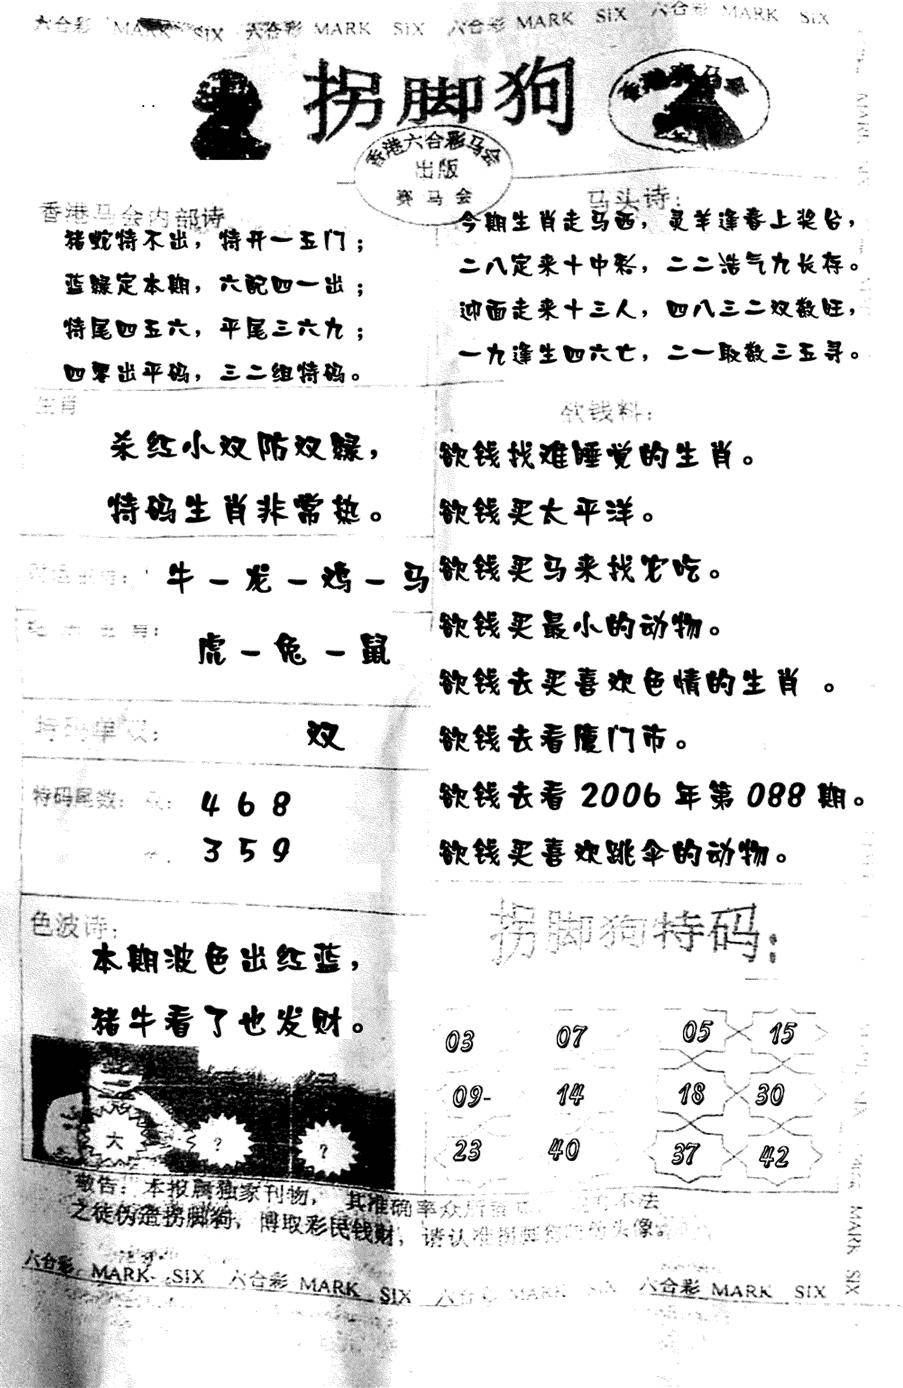 六合彩 MARK SIX 六合彩 MARK SIX 六合彩 MARK SIX 六合彩 MARK SIX
拐脚狗
香港赛马会
香港六合彩马会
出版
赛马会
香港马会内部诗
猪蛇特不出，特开一五门；
蓝绿定本期，六配四一出；
特尾四五六，平尾三六九；
四零出平码，三二组特码。
马头诗：
今期生肖走马西，灵羊逢春上奖台，
二八定来十中彩，二二浩气九长存。
迎面走来十三人，四八三二双数旺，
一九逢生四六亡，二一取数三五寻。
生肖
杀红小双防双绿，
特码生肖非常热。
牛－龙－鸡－马
虎－兔－鼠
特码单双：
双
特码尾数：
4 6 8
3 5 9
欲钱料：
欲钱找难睡觉的生肖。
欲钱买太平洋。
欲钱买马来找农吃。
欲钱买最小的动物。
欲钱去买喜欢色情的生肖 。
欲钱去看厦门市。
欲钱去看 2006 年第 088 期。
欲钱买喜欢跳伞的动物。
色波诗：
本期波色出红蓝，
猪牛看了也发财。
大 ? ?
拐脚狗特码：
03 07 05 15
09- 14 18 30
23 40 37 42
敬告：本报属独家刊物，其准确率众所 不法
之徒伪造拐脚狗，博取彩民钱财，请认准拐脚狗 的头像
六合彩 MARK SIX 六合彩 MARK SIX 六合彩 MARK SIX 六合彩 MARK SIX
MARK SIX